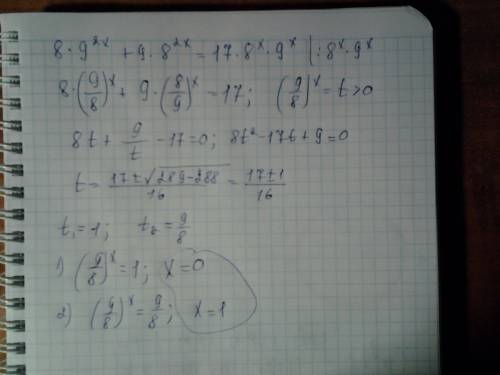 8 · 9^{2x} + 9 · 8^{2x} = 17 · 8^x · 9^x | : 8^x · 9^x
8 · (9/8)^x + 9 · (8/9)^x = 17; (9/8)^x = t > 0
8t + 9/t - 17 = 0; 8t² - 17t + 9 = 0
t = (17 ± √(289 - 288))/16 = (17 ± 1)/16
t₁ = 1; t₂ = 9/8
1) (9/8)^x = 1; x = 0
2) (9/8)^x = 9/8; x = 1